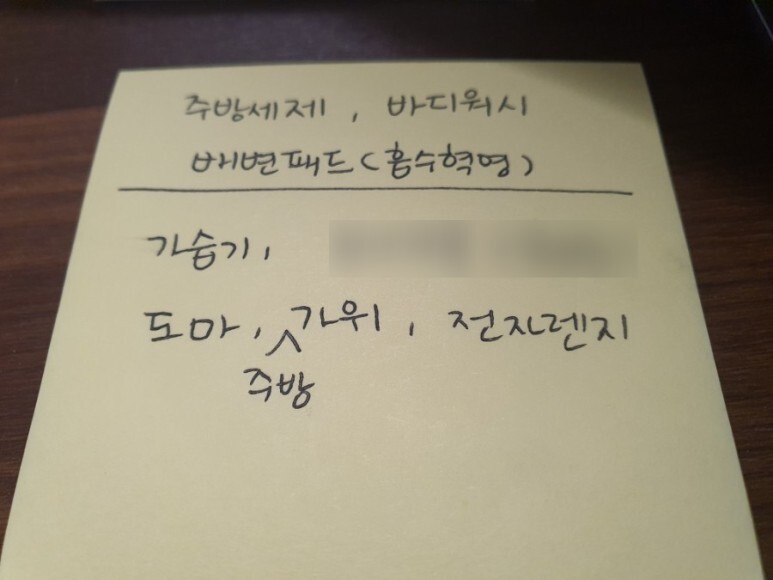 주방세제, 바디워시
배변패드(흡수혁명)
가습기,
도마, 주방가위, 전자렌지